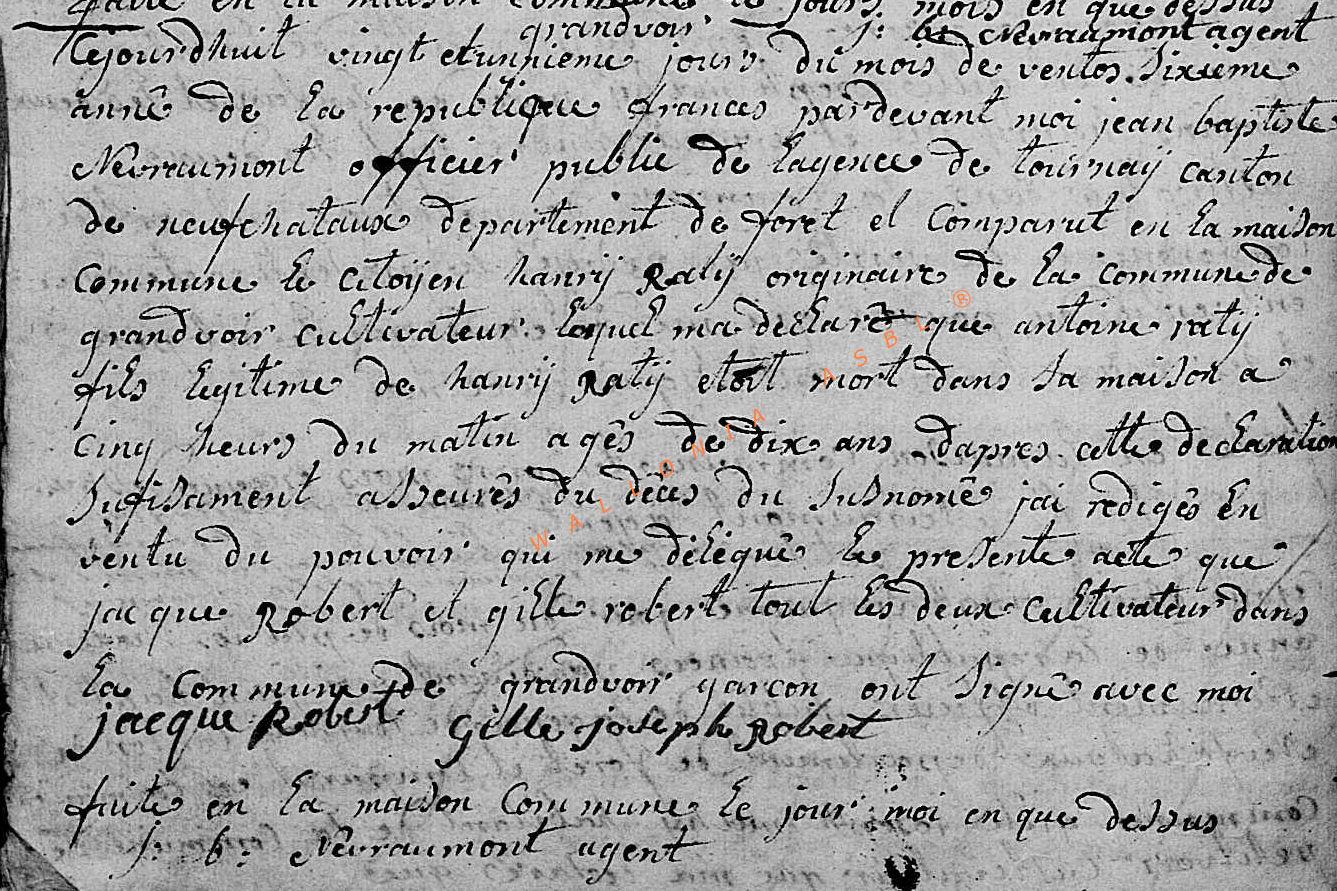 faite en la maison commune le jours mois en que dessus
grandvoir j: b: Nevraumont agent
Cejourdhuit vingt etunnieme jours du mois de ventos sixieme
année de la republique frances pardevant moi jean baptiste
Nevraumont officier public de lagence de tournaij canton
de neufchataux departement de foret el comparut en la maison
commune le citoijen hanrij Ratij originaire de la commune de
grandvoir cultivateur lequel ma declaré que antoine ratij
fils legitime de hanrij Ratij etoit mort dans sa maison a
cinq heurs du matin agês de dix ans dapres cette declaration
sufisament asseurês du dêces du susnomê jai redigês en
ventu du pouvoir qui me dêleguê le presente acte que
jacque Robert et gille robert tout les deux cultivateur dans
la commune de grandvoir garcon ont signê avec moi
jacque Robert Gille joseph Robert
faite en la maison commune le jour moi en que dessus
j: b: Nêvraumont agent
WALLONIA ASBL ®